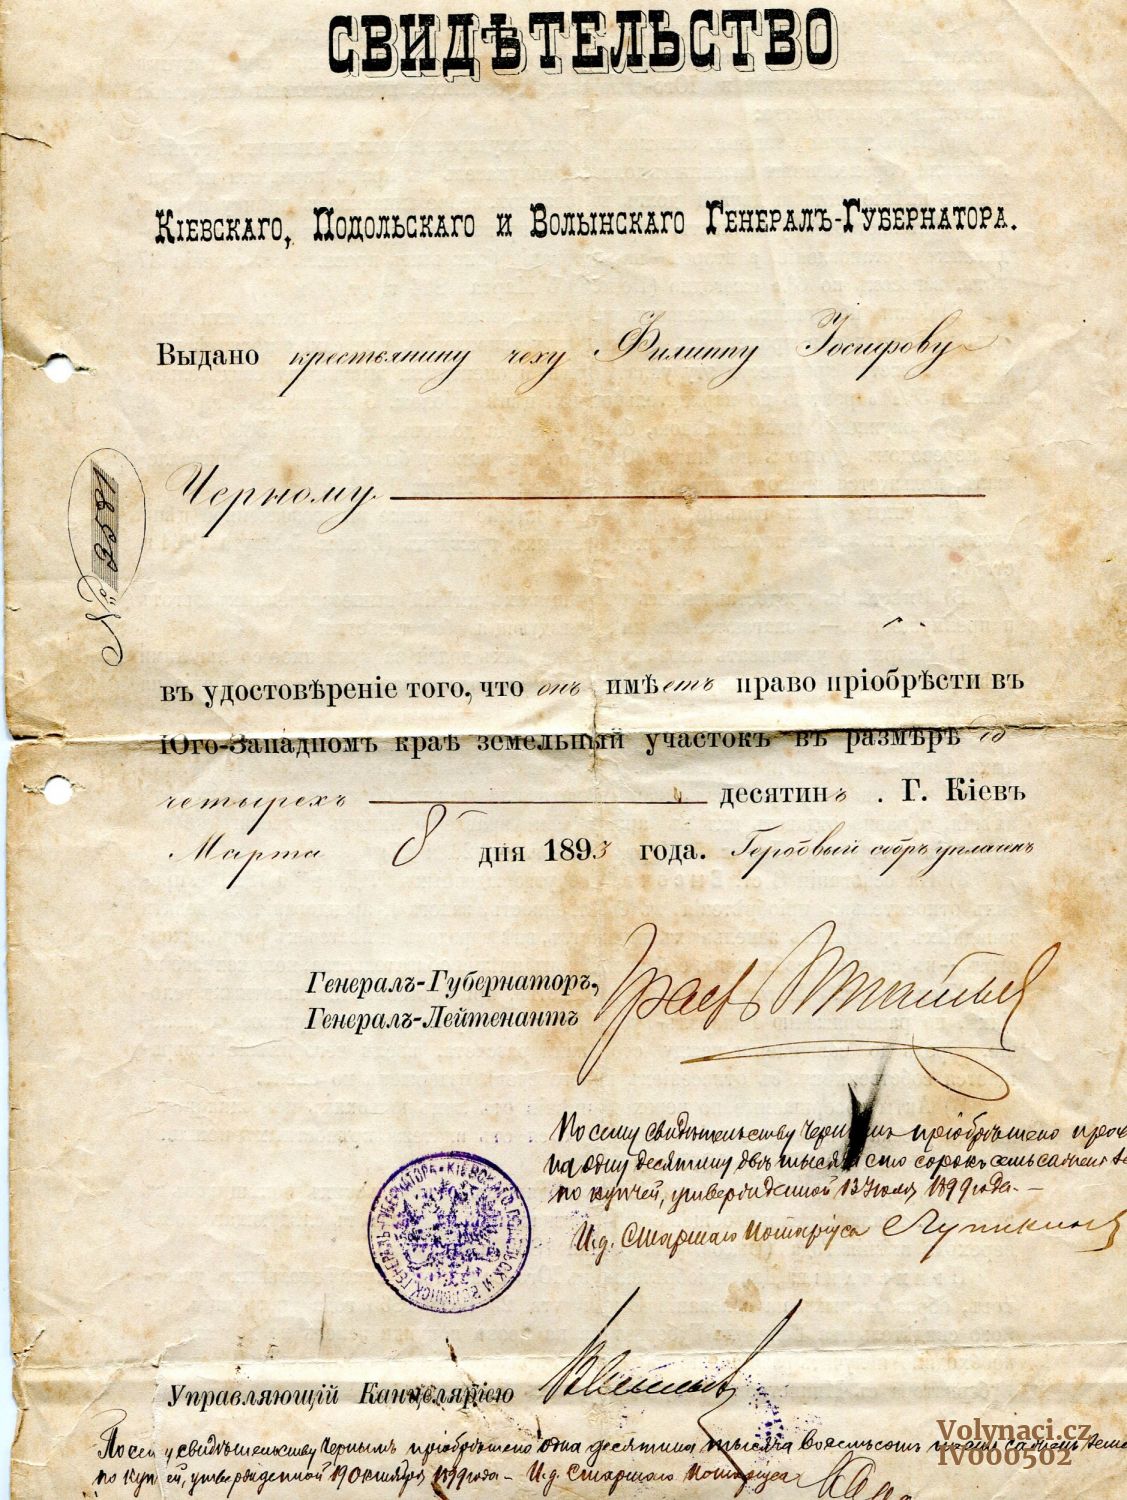 СВИДѢТЕЛЬСТВО
Кіевскаго, Подольскаго и Волынскаго Генералъ-Губернатора.
Выдано крестьянину чеху Филиппу Іосифову
Черному
№
въ удостовѣреніе того, что онъ имѣетъ право пріобрѣсти въ
Юго-Западномъ краѣ земельный участокъ въ размѣрѣ до
четырехъ десятинъ. Г. Кіевъ
Марта 8 дня 1893 года. Гербовый сборъ уплаченъ
Генералъ-Губернаторъ,
Генералъ-Лейтенантъ Графъ Игнатьевъ
По сему свидѣтельству Чернымъ пріобрѣтено
на одну десятину двѣ тысячи сто сорокъ семь сажень
по купчей, утвержденной 13 Іюля 1899 года.—
И.д. Старшаго Нотаріуса
Управляющій Канцеляріею
По сему свидѣтельству Чернымъ пріобрѣтено одна десятина тысяча восемьсотъ сажень
по купчей, утвержденной 19 Октября 1899 года — И.д. Старшаго Нотаріуса
Volynaci.cz
IV000502